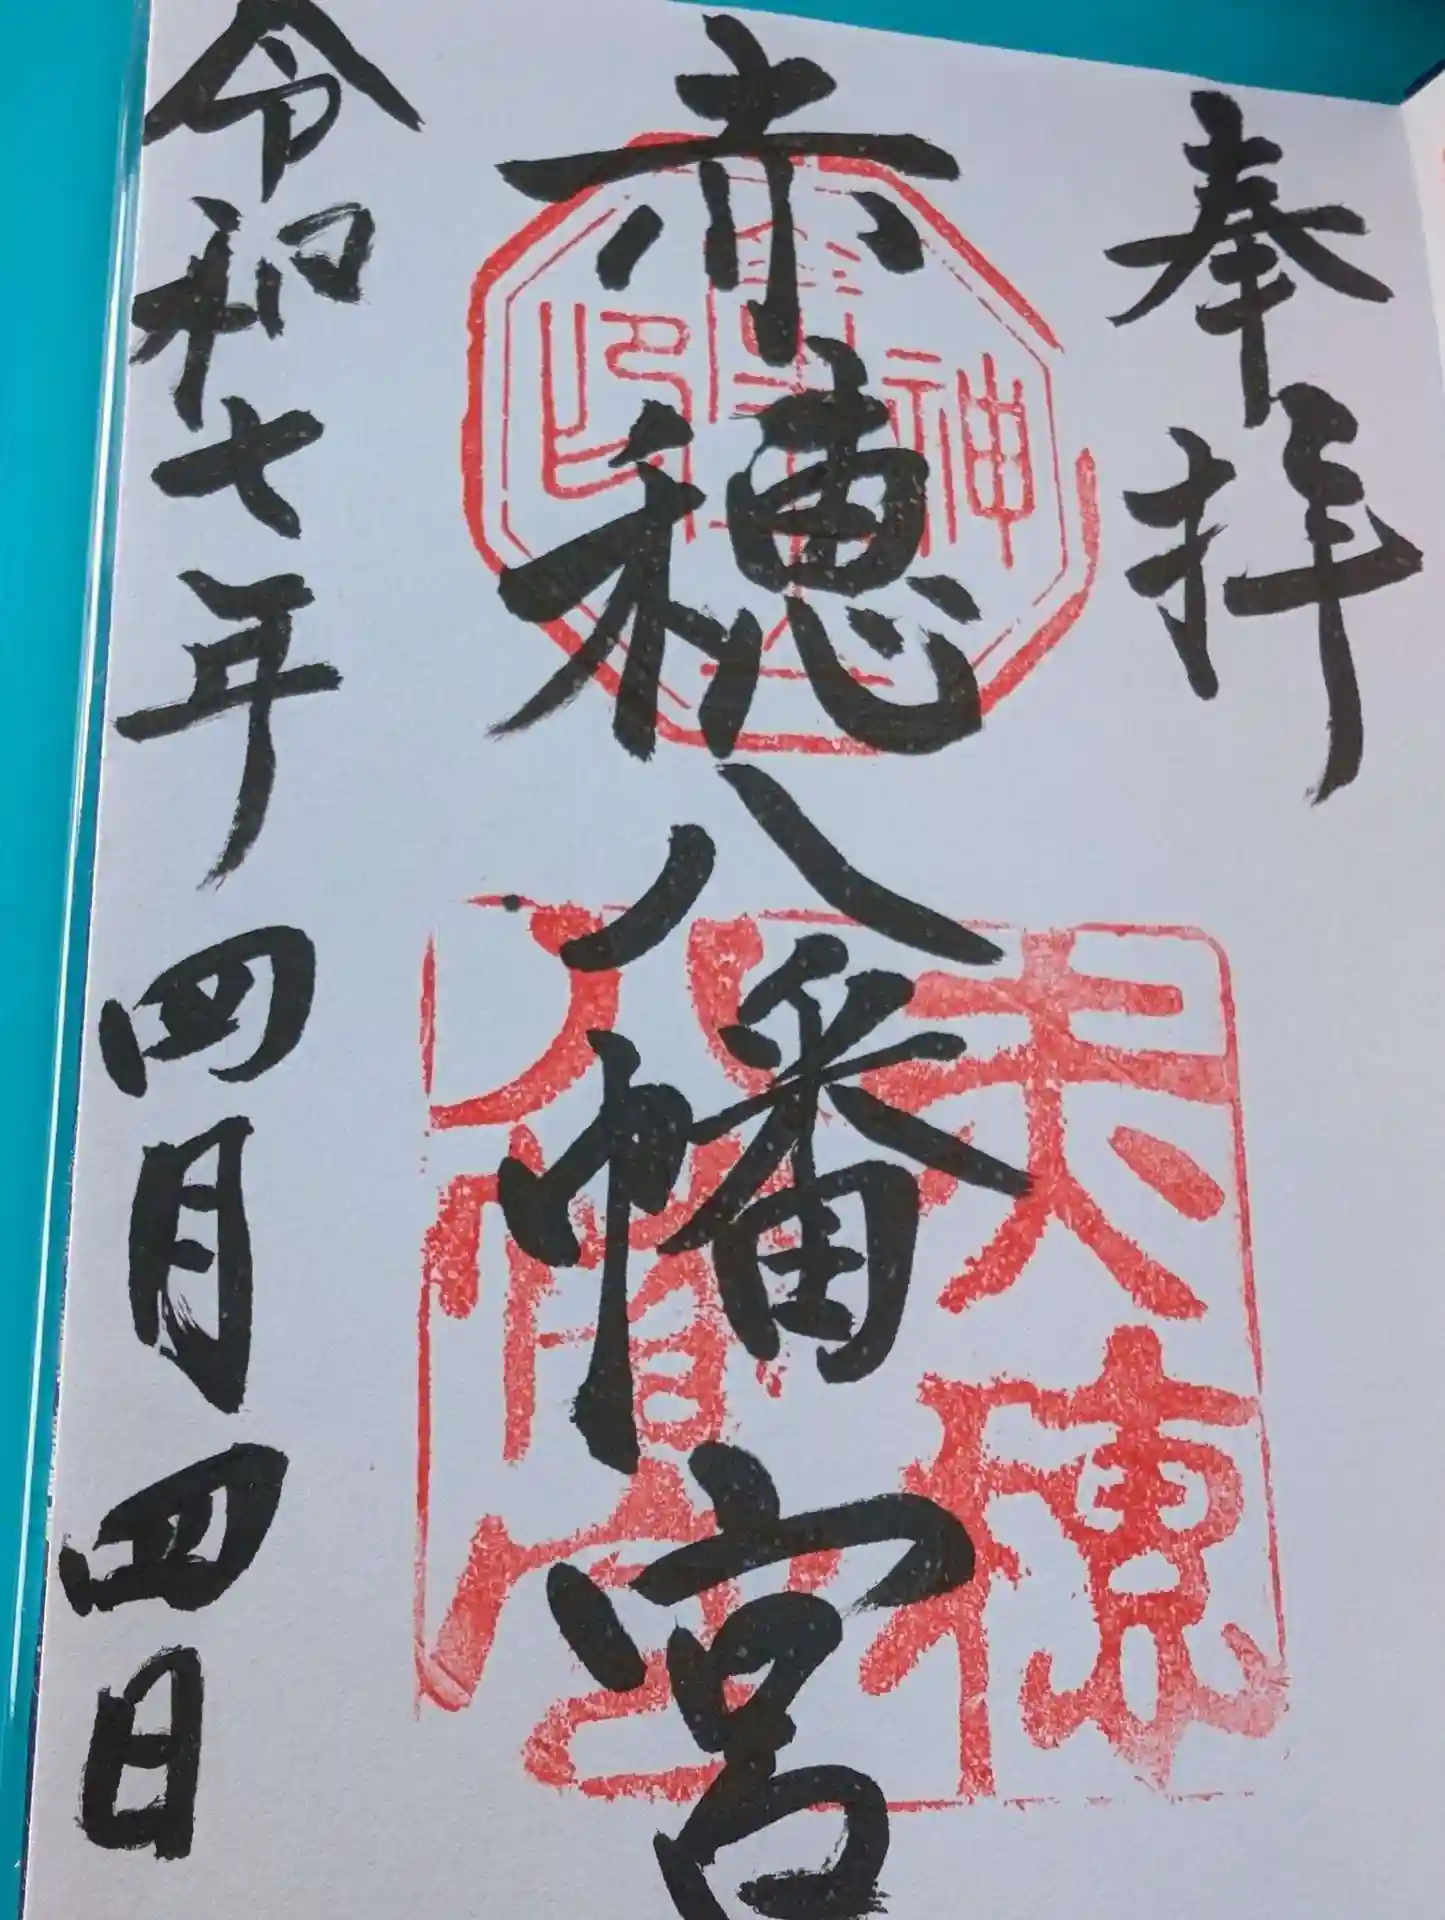 奉拝
赤穂八幡宮
令和七年四月四日
赤穂
八幡宮